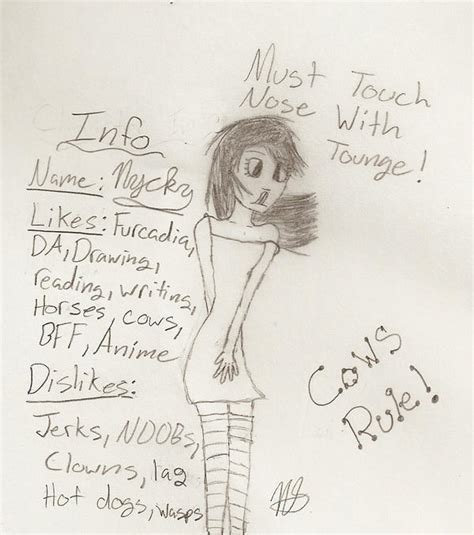 Must Touch
Nose With
Tounge!
Info
Name: Nycky
Likes: Furcadia,
DA, Drawing,
reading, writing,
Horses, cows,
BFF, Anime
Dislikes:
Jerks, NOOBs,
Clowns, lag
Hot dogs, wasps
Cows
Rule!